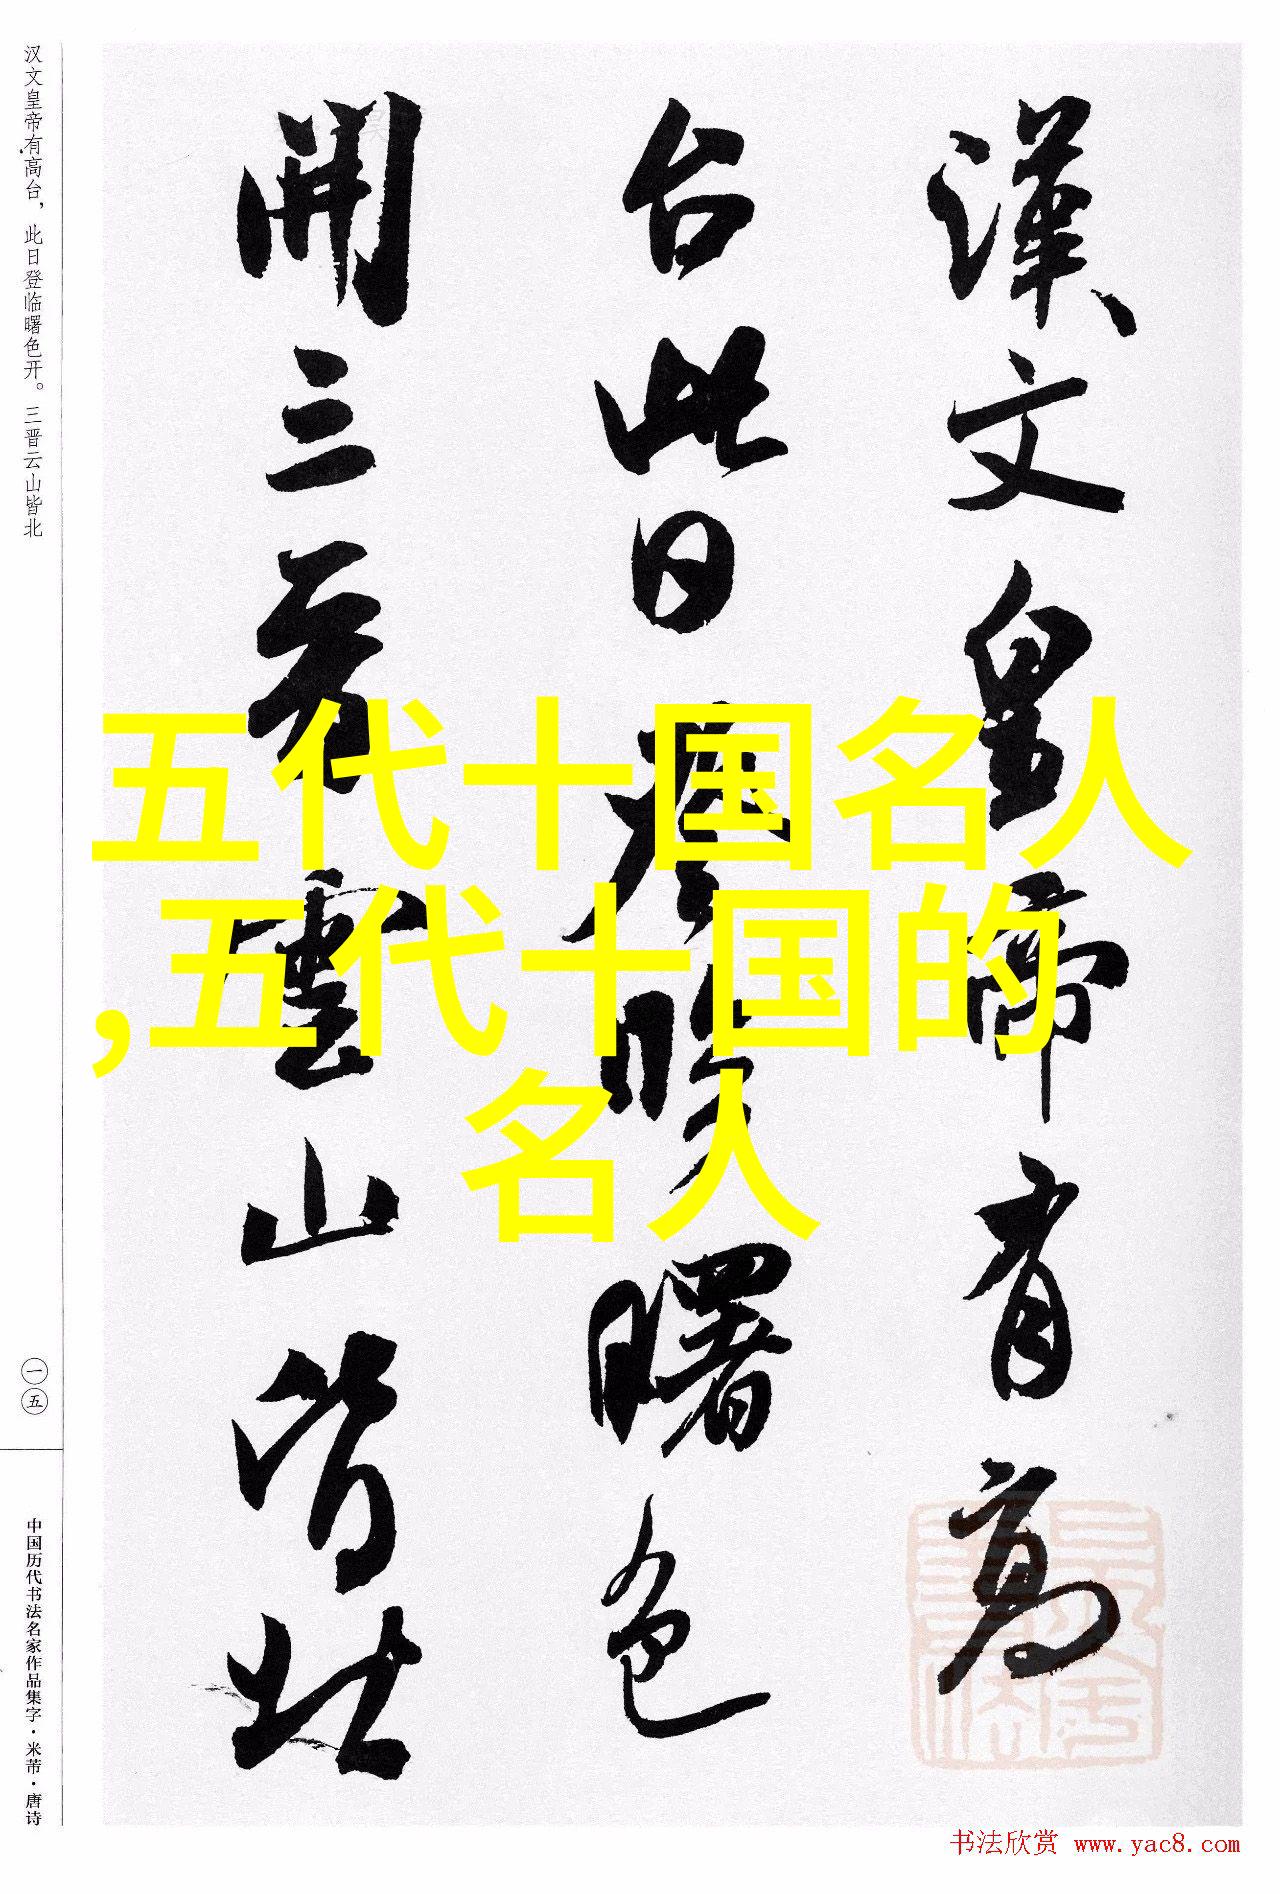 漢文皇帝有高
台此日登臨曙色
開三晉雲山皆北
五代十国名人
,五代十国的
名人
汉文皇帝有高台，此日登临曙色开。三晋云山皆北
一五
中国历代书法名家作品集字·米芾·唐诗
书法欣赏 www.yac8.com